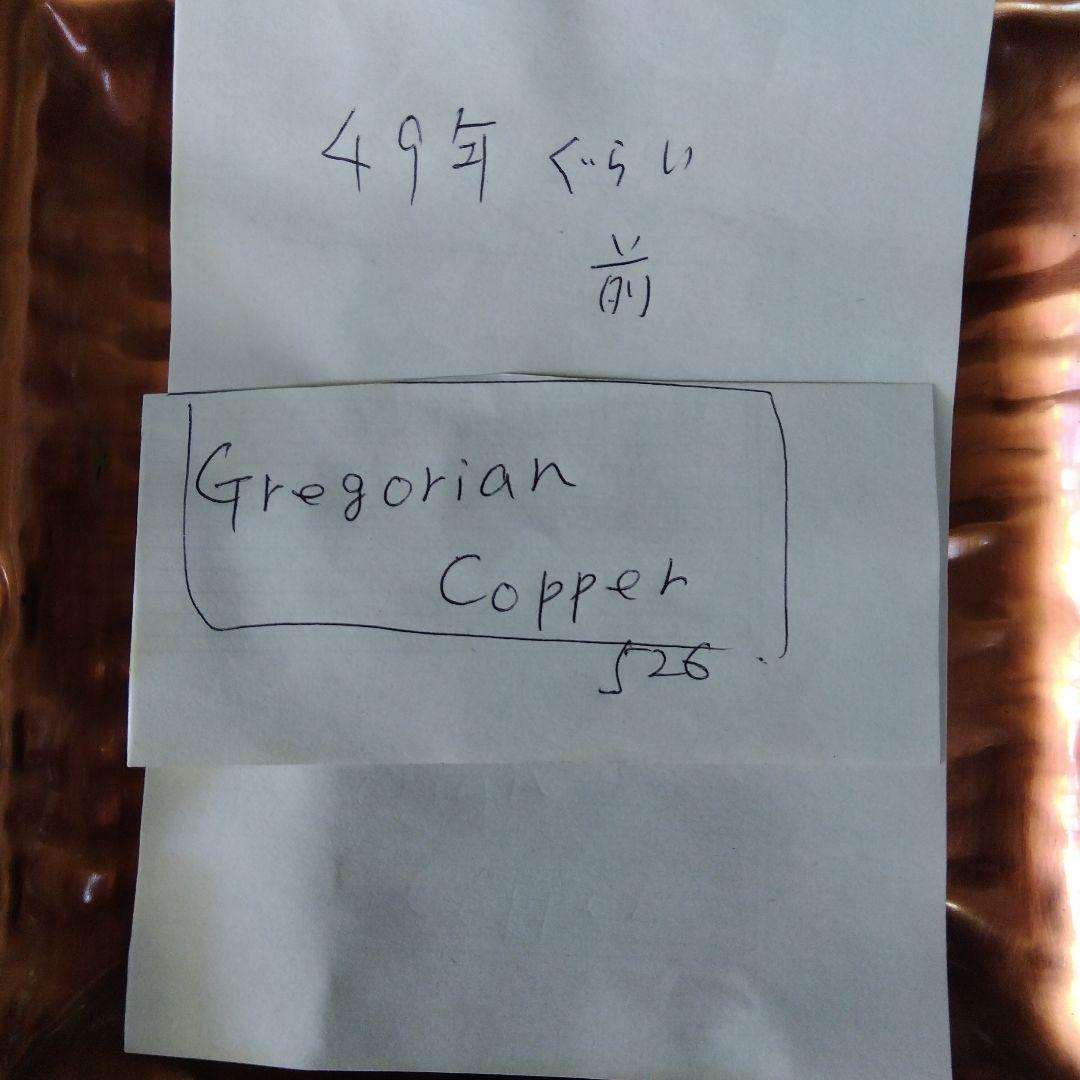 49年ぐらい
前
Gregorian
Copper
526